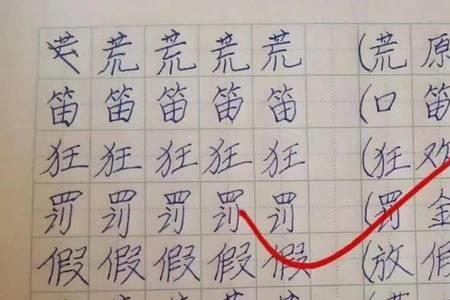 荒荒荒荒荒 (荒原
笛笛笛笛笛 (口笛
狂狂狂狂狂 (狂欢
罚罚罚罚罚 (罚金
假假假假假 (放假